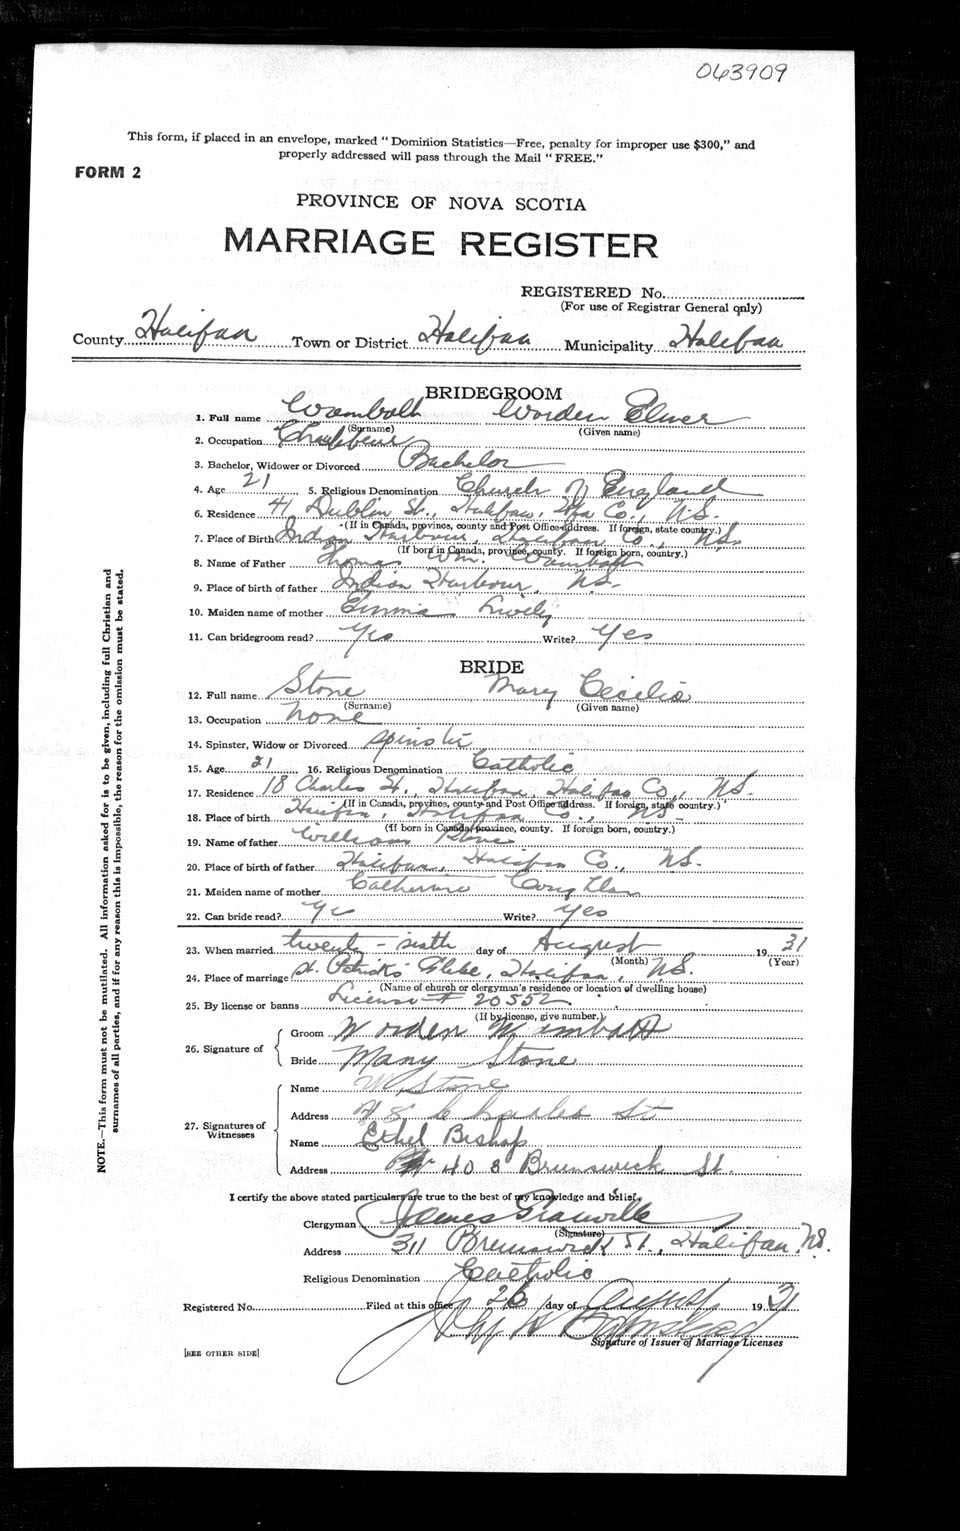 063909
This form, if placed in an envelope, marked "Dominion Statistics—Free, penalty for improper use $300," and
properly addressed will pass through the Mail "FREE."
FORM 2
PROVINCE OF NOVA SCOTIA
MARRIAGE REGISTER
REGISTERED No.
(For use of Registrar General only)
County Halifax Town or District Halifax Municipality Halifax
BRIDEGROOM
1. Full name Wambolt Worden Elmer
(Surname) (Given name)
2. Occupation Chauffeur
3. Bachelor, Widower or Divorced Bachelor
4. Age 21 5. Religious Denomination Church of England
6. Residence 41 Dublin St., Halifax, Hfx Co., N.S.
(If in Canada, province, county and Post Office address. If foreign, state country.)
7. Place of Birth Indian Harbour, Halifax Co., N.S.
(If born in Canada, province, county. If foreign born, country.)
8. Name of Father Thomas Wm. Wambolt
9. Place of birth of father Indian Harbour, N.S.
10. Maiden name of mother Emma Lively
11. Can bridegroom read? Yes Write? Yes
BRIDE
12. Full name Stone Mary Cecilia
(Surname) (Given name)
13. Occupation None
14. Spinster, Widow or Divorced Spinster
15. Age 21 16. Religious Denomination Catholic
17. Residence 18 Charles St., Halifax, Halifax Co., N.S.
(If in Canada, province, county and Post Office address. If foreign, state country.)
18. Place of birth Halifax, Halifax Co., N.S.
(If born in Canada, province, county. If foreign born, country.)
19. Name of father William Stone
20. Place of birth of father Halifax, Halifax Co., N.S.
21. Maiden name of mother Catherine Coughlan
22. Can bride read? Yes Write? Yes
23. When married twenty-sixth day of August 19 31
(Month) (Year)
24. Place of marriage St. Patrick's Glebe, Halifax, N.S.
(Name of church or clergyman's residence or location of dwelling house)
25. By license or banns License # 20552
(If by license, give number.)
26. Signature of
Groom Worden Wambolt
Bride Mary Stone
27. Signatures of Witnesses
Name W Stone
Address 18 Charles St
Name Ethel Bishop
Address 403 Brunswick St.
I certify the above stated particulars are true to the best of my knowledge and belief.
Clergyman James Granville
(Signature)
Address 311 Brunswick St., Halifax N.S.
Religious Denomination Catholic
Registered No. Filed at this office 26 day of August 19 31
Signature of Issuer of Marriage Licenses
[SEE OTHER SIDE]
NOTE.—This form must not be mutilated. All information asked for is to be given, including full Christian and
surnames of all parties, and if for any reason this is impossible, the reason for the omission must be stated.